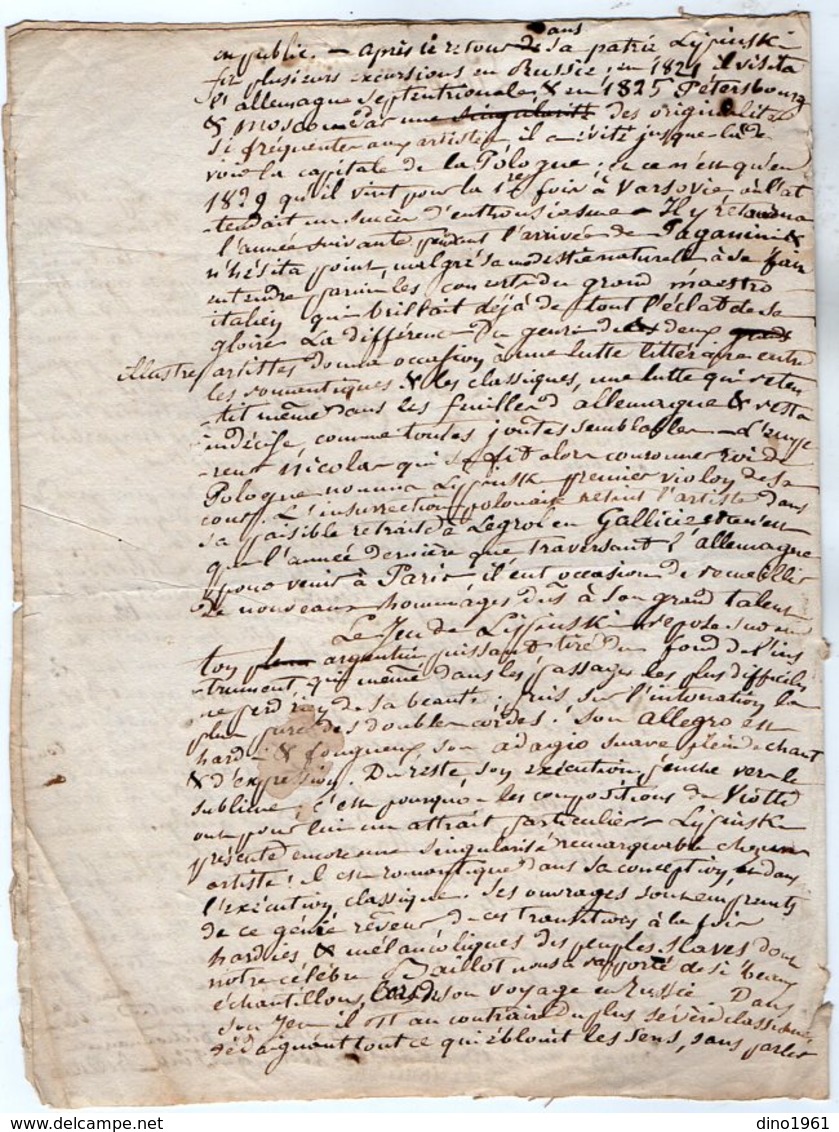 dans
en public. – après le retour de sa patrie Lipinski
fit plusieurs excursions en Russie; en 1821 il visita
l'allemagne septentrionale, & en 1825 Pétersbourg
& Moscou. Par une singularité des originalités
si fréquentes aux artistes il a évité jusque là de
voir la capitale de la Pologne; et ce n'est qu'en
1829 qu'il vint pour la 1re fois à Varsovie où l'at
-tendait un succès d'enthousiasme – Il y retourna
l'année suivante pendant l'arrivée de Paganini &
n'hésita point, malgré sa modestie naturelle à se faire
entendre parmi les concerts du grand maestro
italien qui brillait déjà de tout l'éclat de sa
gloire La différence du genre de ces deux grands
illustres artistes donna occasion à une lutte littéraire entre
les romantiques & les classiques, une lutte qui reten
-tit même dans les feuilles d'allemagne & resta
indécise, comme toutes joutes semblables – L'empe
-reur Nicolas qui se fit alors couronner roi de
Pologne nomma Lipinski premier violon de sa
cour. L'insurrection polonaise retint l'artiste dans
sa paisible retraite à Legrol en Gallicie et ce n'est
que l'année dernière que traversant l'allemagne
pour venir à Paris il eut occasion de recueillir
de nouveaux hommages dûs à son grand talent
Le Jeu de Lipinski repose sur un
ton plein argentin puissant tiré du fond de l'ins
-trument, qui même dans les passages les plus difficiles
ne perd rien de sa beauté; puis sur l'intonation la
plus pure des doubles cordes. Son allegro est
hardi & fougueux son adagio suave plein de chant
& d'expression. Du reste son exécution penche vers le
sublime; c'est pourquoi les compositions de Viotti
ont pour lui un attrait particulier Lipinski
présente encore une singularité remarquable chez un
artiste: il est romantique dans sa conception, & dans
l'exécution classique. Ses ouvrages sont empreints
de ce génie rêveur de ces transitions à la fois
hardies & mélancoliques des peuples slaves dont
notre célèbre Baillot nous a rapporté de si beaux
échantillons, lors de son voyage en Russie. Dans
son Jeu il est au contraire du plus sévère classique
dédaignant tout ce qui éblouit les sens, sans parler
dino1961